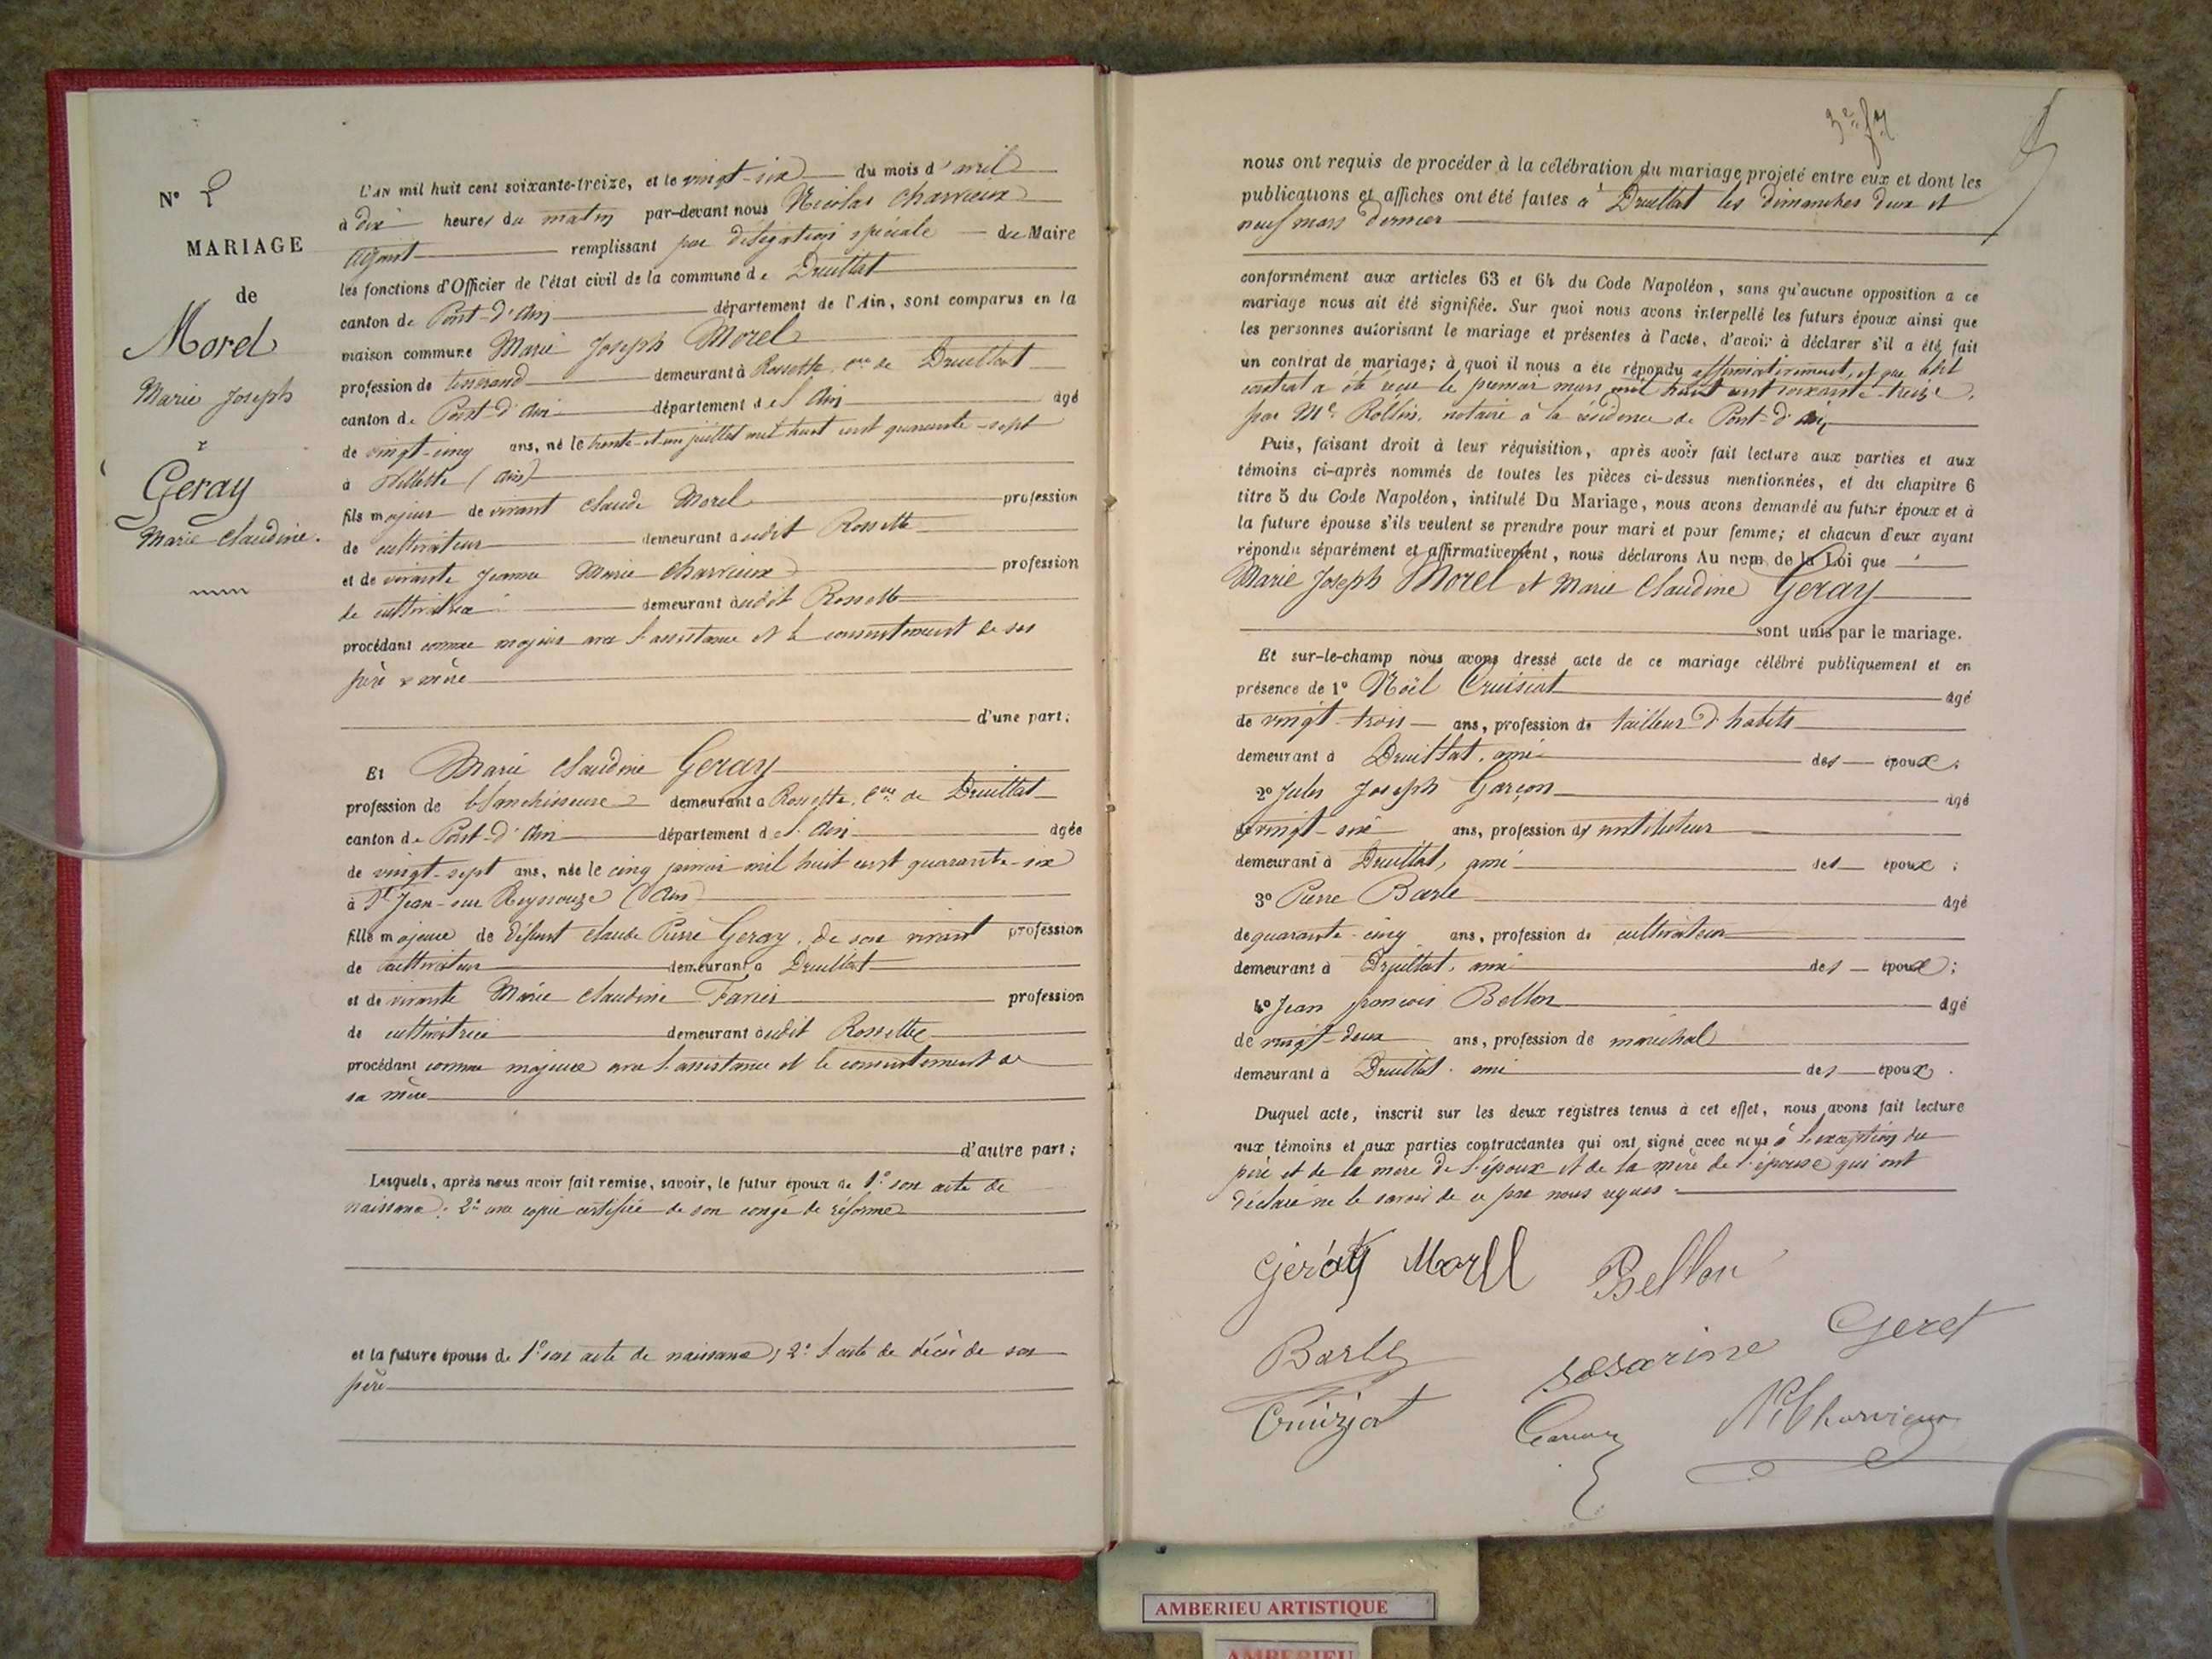 N° 8
MARIAGE
de
Morel
Marie Joseph
&
Geray
Marie Claudine.
L'AN mil huit cent soixante-treize, et le vingt-six du mois d'avril
à dix heures du matin par-devant nous Nicolas Charvieux
adjoint remplissant par délégation spéciale du Maire
les fonctions d'Officier de l'état civil de la commune de Druillat
canton de Pont-d'Ain département de l'Ain, sont comparus en la
maison commune Marie Joseph Morel
profession de tisserand demeurant à Rossette, cne de Druillat
canton de Pont-d'Ain département de l'Ain âgé
de vingt-cinq ans, né le trente-et-un juillet mil huit cent quarante-sept
à (Ain)
fils majeur de vivant Claude Morel profession
de cultivateur demeurant audit Rossette
et de vivante Jeanne Marie Charvieux profession
de cultivatrice demeurant audit Rossette
procédant comme majeur avec l'assistance et le consentement de ses
père & mère
d'une part;
Et Marie Claudine Geray
profession de blanchisseuse demeurant à Rossette, cne de Druillat
canton de Pont-d'Ain département de l'Ain âgée
de vingt-sept ans, née le cinq janvier mil huit cent quarante-six
à St Jean-sur Reyssouze (Ain)
fille majeure de défunt Claude Pierre Geray, de son vivant profession
de cultivateur demeurant à Druillat
et de vivante Marie Claudine profession
de cultivatrice demeurant audit Rossette
procédant comme majeure avec l'assistance et le consentement de
sa mère
d'autre part;
Lesquels, après nous avoir fait remise, savoir, le futur époux de 1° son acte de
naissance; 2° une copie certifiée de son congé de réforme
et la future épouse de 1° son acte de naissance; 2° l'acte de décès de son
père
nous ont requis de procéder à la célébration du mariage projeté entre eux et dont les
publications et affiches ont été faites à Druillat les dimanches deux et
neuf mars dernier
conformément aux articles 63 et 64 du Code Napoléon, sans qu'aucune opposition à ce
mariage nous ait été signifiée. Sur quoi nous avons interpellé les futurs époux ainsi que
les personnes autorisant le mariage et présentes à l'acte, d'avoir à déclarer s'il a été fait
un contrat de mariage; à quoi il nous a été répondu affirmativement, et que ledit
contrat a été reçu le premier mars mil huit cent soixante-treize,
par Me Rollin, notaire à la résidence de Pont-d'Ain
Puis, faisant droit à leur réquisition, après avoir fait lecture aux parties et aux
témoins ci-après nommés de toutes les pièces ci-dessus mentionnées, et du chapitre 6
titre 5 du Code Napoléon, intitulé Du Mariage, nous avons demandé au futur époux et à
la future épouse s'ils veulent se prendre pour mari et pour femme; et chacun d'eux ayant
répondu séparément et affirmativement, nous déclarons Au nom de la Loi que
Marie Joseph Morel et Marie Claudine Geray
sont unis par le mariage.
Et sur-le-champ nous avons dressé acte de ce mariage célébré publiquement et en
présence de 1° Noël Cruisiat âgé
de vingt-trois ans, profession de tailleur d'habits
demeurant à Druillat, ami des époux;
2° Jules Joseph Garçon âgé
de vingt-six ans, profession d'instituteur
demeurant à Druillat, ami des époux;
3° Pierre Barle âgé
de quarante-cinq ans, profession de cultivateur
demeurant à Druillat, ami des époux;
4° Jean françois Bellon âgé
de vingt-deux ans, profession de maréchal
demeurant à Druillat, ami des époux.
Duquel acte, inscrit sur les deux registres tenus à cet effet, nous avons fait lecture
aux témoins et aux parties contractantes qui ont signé avec nous à l'exception du
père et de la mère de l'époux et de la mère de l'épouse qui ont
déclaré ne le savoir de ce par nous requis
Geray Morel Bellon
Barle Geret
N. Charvieux
AMBERIEU ARTISTIQUE
AMBERIEU